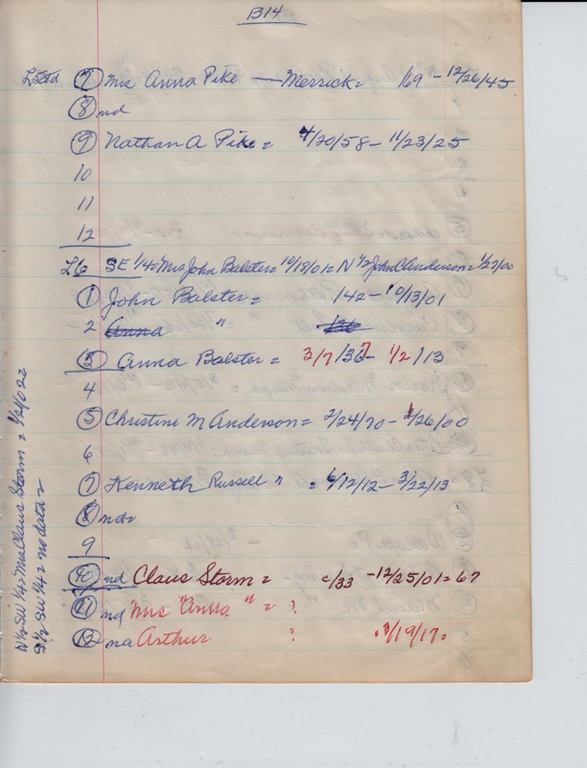 B14
L5ctd ⑦ Mrs Anna Pike — Merrick = 1/69 - 12/26/45
⑧ nd
⑨ Nathan A Pike = 4/20/58 - 11/23/25
10
11
12
L6 SE 1/4 = Mrs John Balster = 10/18/01 = N 1/2 John C Anderson = 1/27/00
① John Balster = 1842 - 10/13/01
2 Anna "
③ Anna Balster = 3/7/37 - 1/2/13
4
⑤ Christine M Anderson = 2/24/70 - 1/26/00
6
⑦ Kenneth Russell " = 6/12/12 - 3/22/13
⑧ nd =
9
⑩ nd Claus Storm = c/33 - 12/25/01 = 67
⑪ nd Mrs "Anna " = ?
⑫ nd Arthur ? = 3/19/17 =
N 1/2 SW 1/4 = Mrs Claus Storm = 1/24/022
S 1/2 SW 1/4 = no data =